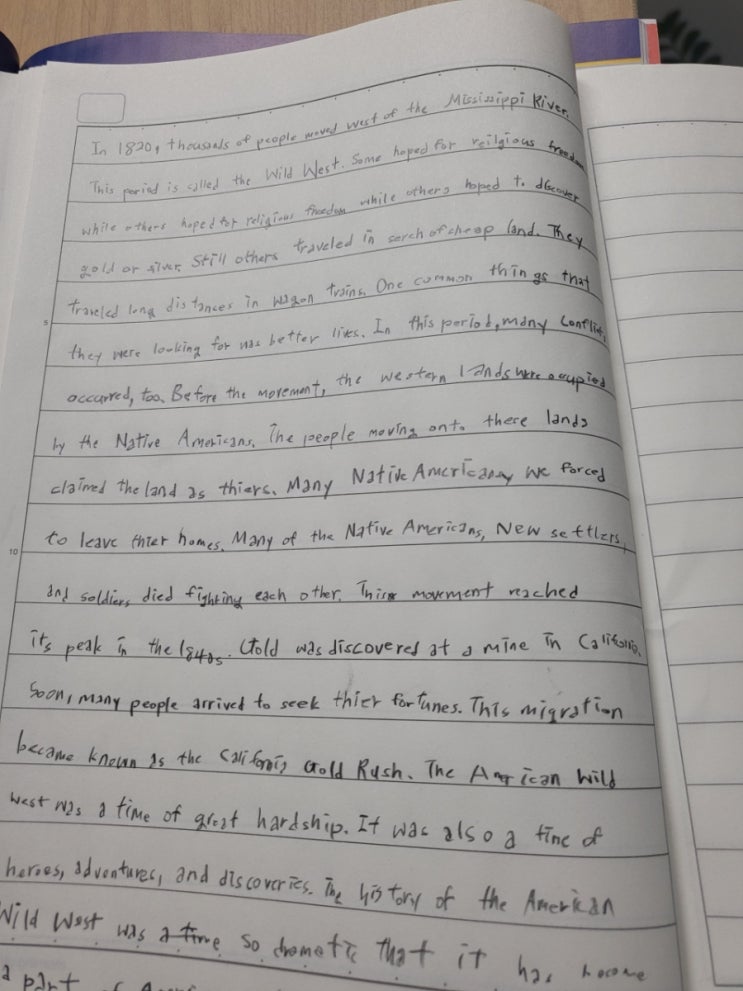 In 1820, thousands of people moved west of the Mississippi River.
This period is called the Wild West. Some hoped for reilgious freedom
while others hoped for religious freedom while others hoped to discover
gold or silver. Still others traveled in serch of cheap land. They
traveled long distances in wagon trains. One common things that
5
they were looking for was better lives. In this period, many conflict
occurred, too. Before the movement, the western lands were occupied
by the Native Americans. The people moving onto there lands
claimed the land as thiers. Many Native Americans we forced
to leave thier homes. Many of the Native Americans, New settlers,
10
and soldiers died fighting each other. This movement reached
its peak in the 1840s. Gold was discovered at a mine in California.
Soon, many people arrived to seek thier fortunes. This migration
became known as the California Gold Rush. The American Wild
West was a time of great hardship. It was also a time of
heroes, adventures, and discoveries. The history of the American
Wild West was a time so dramatic that it has become
a part of